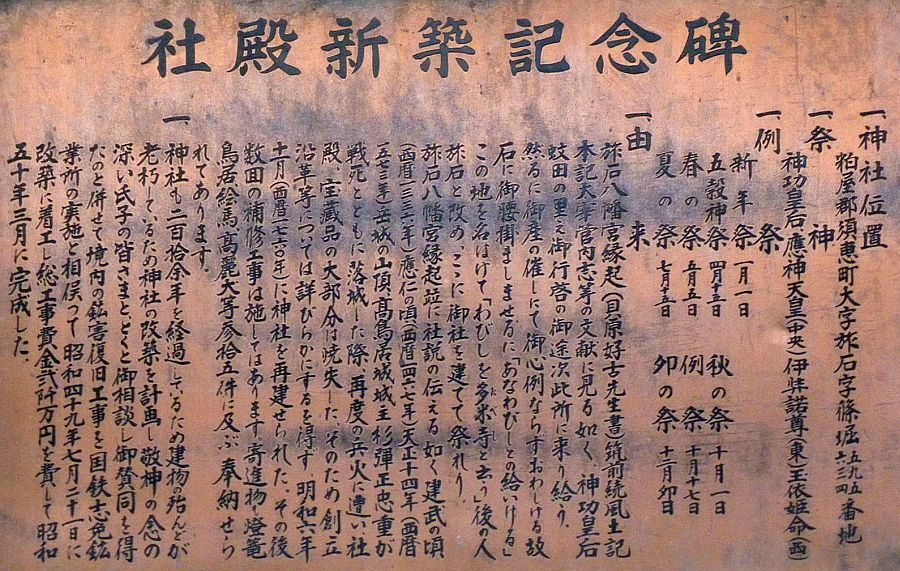 社殿新築記念碑
一神社位置
粕屋郡須恵町大字旅石字篠堀五九五六三四番地
一祭神
神功皇后應神天皇(中央)伊弉諾尊(東)玉依姫命(西)
一例祭
新年祭 一月一日
五穀神祭 四月十五日 秋の祭 十月一日
春の祭 五月五日 例祭 十月十七日
夏の祭 七月十五日 卯の祭 十二月卯日
一由来
旅石八幡宮縁起(目原好古先生書)筑前続風土記
本記太宰管内志等の文献に見る如く、神功皇后
蚊田の里え御行啓の御途次此所に来り給う。
然るに御産の催しにて御心例ならずおわしける故
石に御腰掛ましませるに「あなわびしとの給いける」
この地を名ばけて「わびしを多米寺と云う」後の人
旅石と改め、ここに御社を建てて祭れり。
旅石八幡宮縁起竝に社説の伝える如く建武の頃
(西暦一三三六年)應仁の頃(西暦一四六七年)天正十四年(西暦
一五八三年)岳城の山頂高鳥居城城主杉彈正忠重が
戦死とともに落城した際、再度の兵火に遭い、社
殿、宝蔵品の大部分は焼失した、そのため創立
沿革等については詳びらかにするを得ず 明和六年
十一月(西暦一七六〇年)に神社を再建せられた。その後
数回の補修工事は施してはあります。寄進物、燈篭
鳥居絵馬高麗犬等参拾五件に及ぶ 奉納せら
れてあります。
一、神社も二百拾余年を経過しているため建物の殆んどが
老朽しているため神社の改築を計画し敬神の念の
深い氏子の皆さまと、とくと御相談し御賛同を得
たのと併せて境内の鉱害復旧工事を国鉄志免鉱
業所の実施と相俟って昭和四十九年七月二十一日に
改築に着工し総工事費金弐阡万円を費して昭和
五十年三月に完成した。